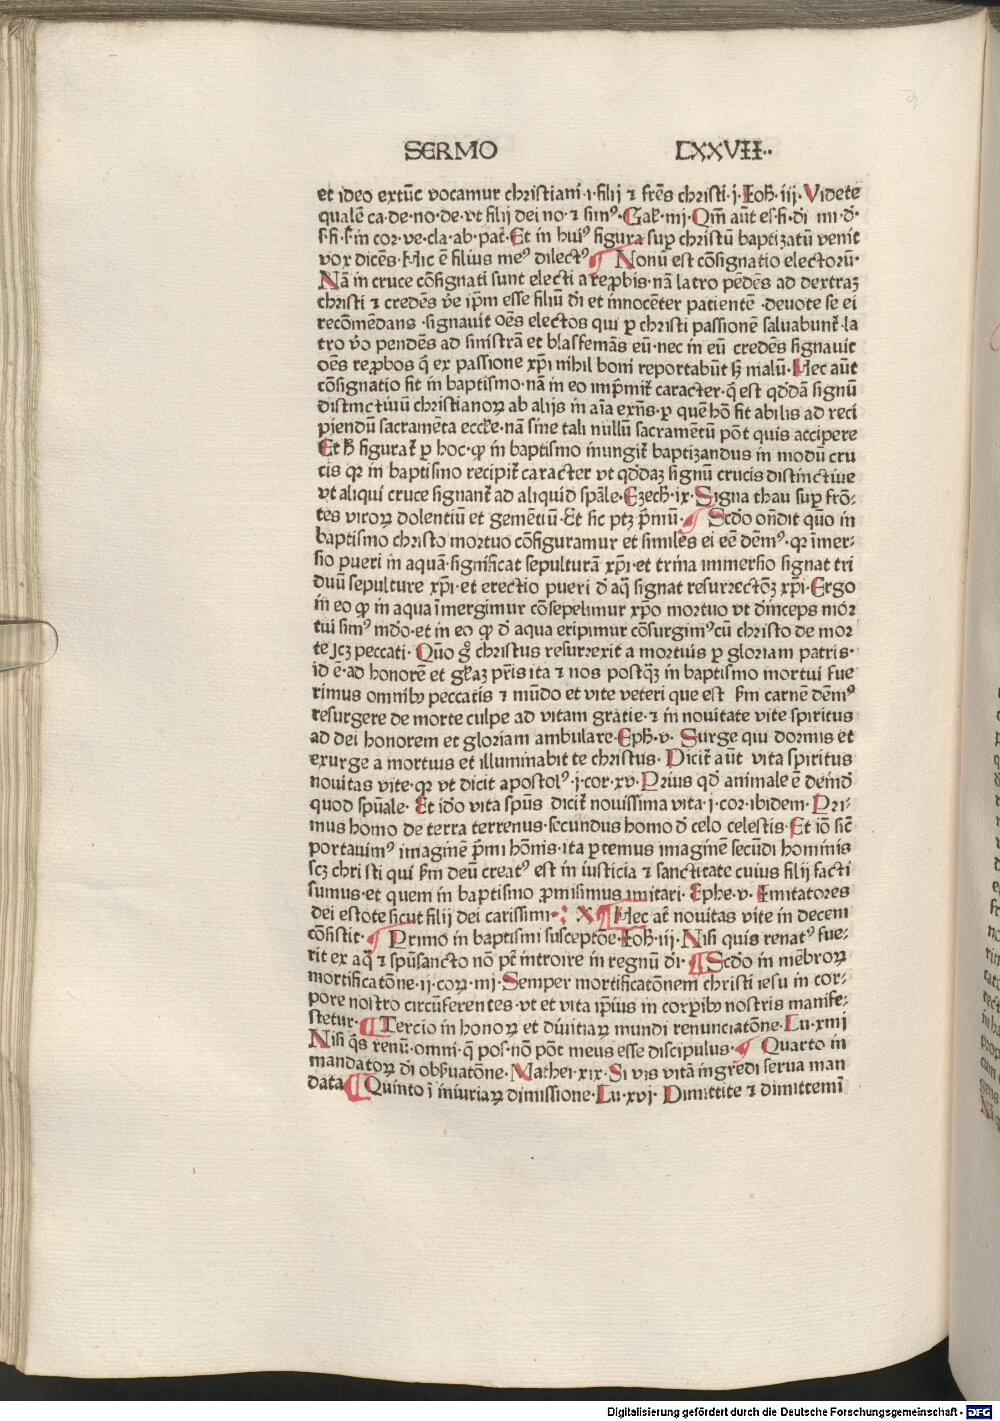 SERMO LXXVII..
et ideo extūc vocamur christiani·i·filij ⁊ fr̄es christi·j·Ioh̄·iij·Videte
qualē ca·de·no·de·vt filij dei no·⁊ simꝰ·Gal̄·iiij·Qm̄ aūt es·fi·di
cor·ve·cla·ab·pat̄·Et in huiꝰ figura sup christū baptizatū venit
vox dicēs·Hic ē filius meꝰ dilectꝰ ¶ Nonū est cōsignatio electoruꝫ·
Nā in cruce cōsignati sunt electi a reꝓbis·nā latro pēdēs ad dextraꝫ
christi ⁊ credēs v̄e ip̄m esse filiū d̄i et innocēter patientē·deuote se ei
recōmēdans·signauit oēs electos qui ꝑ christi passionē saluabunt̄·la
tro v̄o pendēs ad sinistrā et blasfemās eū·nec in eū credēs signauit
oēs reꝓbos q̄ ex passione xp̄i nihil boni reportabūt sꝫ malū·Hec aūt
cōsignatio fit in baptismo·nā in eo imp̄mit̄ caracter·q̄ est qd̄dā signū
distinctiuū christianoꝝ ab alijs in aīa exn̄s·ꝑ quē hō fit abilis ad reci
piendū sacramēta eccl̄e·nā sine tali nullū sacramētū pōt quis accipere
Et h̄ figurat̄ ꝑ hoc·ꝙ in baptismo inungit̄ baptizandus in modū cru
cis qꝛ in baptismo recipit̄ caracter vt qd̄daꝫ signū crucis distinctiue
vt aliqui cruce signant̄ ad aliquid sp̄ale·Ezech̄·ix·Signa thau sup frō⸗
tes viroꝝ dolentiū et gemētiū·Et sic ptꝫ p̄mū· ¶ Scd̄o on̄dit quō in
baptismo christo mortuo cōfiguramur et similes ei eē dēmꝰ·qꝛ īmer⸗
sio pueri in aquā·significat sepulturā xp̄i·et trina immersio signat tri
duū sepulture xp̄i·et erectio pueri d̄ aq̄ signat resurrectōꝫ xp̄i·Ergo
in eo ꝙ in aqua īmergimur cōsepelimur xp̄o mortuo vt d̄inceps mor
tui simꝰ md̄o·et in eo ꝙ d̄ aqua eripimur cōsurgimꝰ cū christo de mor
te scꝫ peccati·Quō g̊ christus resurrexit a mortuis ꝑ gloriam patris·
id ē·ad honorē et gl̄iaꝫ pr̄is ita ⁊ nos postq̄ꝫ in baptismo mortui fue
rimus omnibꝫ peccatis ⁊ mūdo et vite veteri que est sm̄ carnē dēmꝰ
resurgere de morte culpe ad vitam gratie·⁊ in nouitate vite spiritus
ad dei honorem et gloriam ambulare·Eph̄·v· Surge qui dormis et
exurge a mortuis et illuminabit te christus·Dicit̄ aūt vita spiritus
nouitas vite·qꝛ vt dicit apostolꝰ·j·cor·xv·Prius qd̄ animale ē deind̄
quod spūale· Et id̄o vita spūs dicit̄ nouissima vita·j·cor·ibidem·Pri⸗
mus homo de terra terrenus·secundus homo d̄ celo celestis·Et iō sic̄
portauimꝰ imaginē p̄mi hōinis·ita ꝑtemus imaginē secūdi hominis
scꝫ christi qui sm̄ deū creatꝰ est in iusticia ⁊ sanctitate cuius filij facti
sumus·et quem in baptismo ꝓmisimus imitari· Ephe·v· Imitatores
dei estote sicut filij dei carissimi·: X ¶ Hec at̄ nouitas vite in decem
cōsistit· ¶ Primo in baptismi susceptōe·Ioh̄·iij·Nisi quis renatꝰ fue⸗
rit ex aq̄ ⁊ spūsancto nō pt̄ introire in regnū d̄i· ¶ Scd̄o in mēbroꝝ
mortificatōne·ij·coꝝ·iiij·Semper mortificatōnem christi iesu in cor⸗
pore nostro circūferentes·vt et vita ip̄ius in corp̄ibꝫ nostris manife⸗
stetur· ¶ Tercio in honoꝝ et diuitiaꝝ mundi renunciatōne·Lu·xiiij
Nisi q̄s renū·omni·q̄ pos·nō pōt meus esse discipulus· ¶ Quarto in
mandatoꝝ d̄i obs̄uatōne·Mathei·xix·Si vis vitā ingredi serua man
data ¶ Quinto ī iniuriaꝝ dimissione·Lu·xvj· Dimittite ⁊ dimittemī
Digitalisierung gefördert durch die Deutsche Forschungsgemeinschaft - DFG